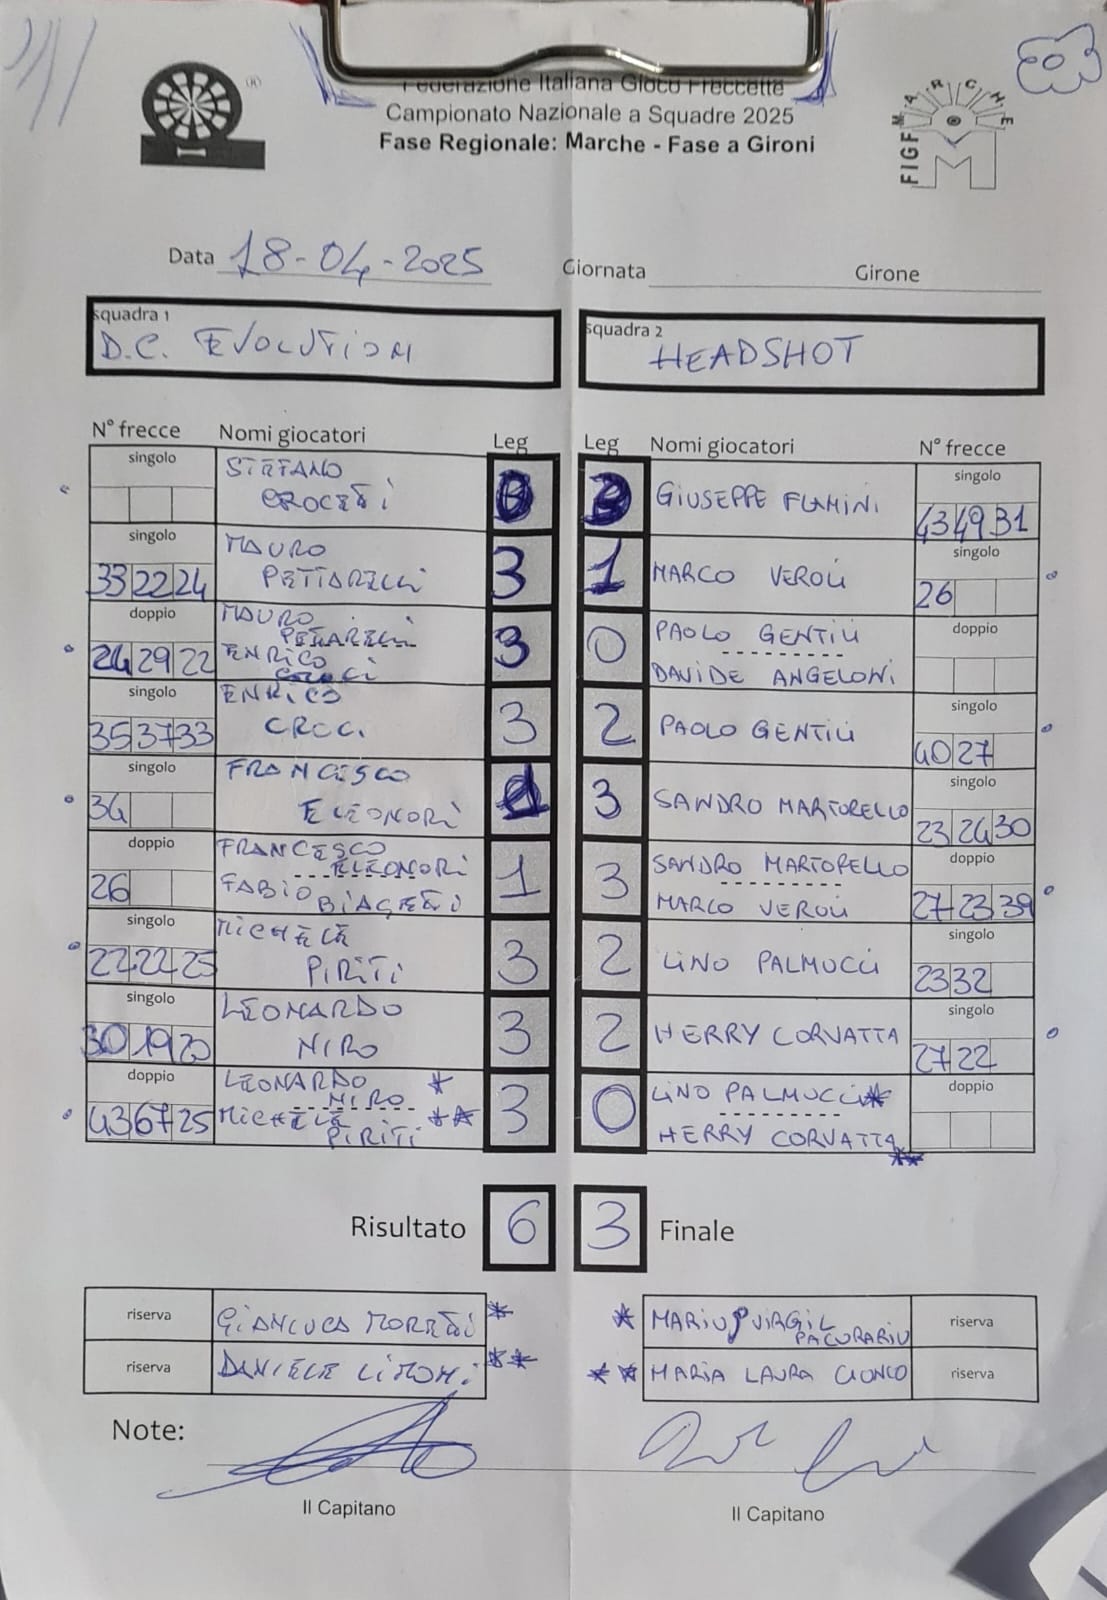 Federazione Italiana Gioco Freccette
Campionato Nazionale a Squadre 2025
Fase Regionale: Marche - Fase a Gironi
FIGF MARCHE
Data 18-04-2025 Giornata Girone
squadra 1 squadra 2
D.C. EVOLUTION HEADSHOT
N° frecce Nomi giocatori Leg Leg Nomi giocatori N° frecce
singolo STEFANO singolo
CROCETTI 0 3 GIUSEPPE FLAMINI 43 49 31
singolo MAURO singolo
33 22 24 PETTARELLI 3 1 MARCO VEROLI 26
doppio MAURO PAOLO GENTILI doppio
PETTARELLI
24 29 22 ENRICO 3 0 DAVIDE ANGELONI
CROCI
singolo ENRICO singolo
35 37 33 CROCI 3 2 PAOLO GENTILI 40 27
singolo FRANCESCO singolo
34 ELEONORI 1 3 SANDRO MARTORELLO 23 24 30
doppio FRANCESCO SANDRO MARTORELLO doppio
ELEONORI
26 FABIO BIAGETTI 1 3 MARCO VEROLI 27 23 39
singolo MICHELE singolo
22 22 25 PIRITI 3 2 LINO PALMUCCI 23 32
singolo LEONARDO singolo
30 19 20 NIRO 3 2 HERRY CORVATTA 27 22
doppio LEONARDO * LINO PALMUCCI * doppio
NIRO
43 67 25 MICHELE ** 3 0 HERRY CORVATTA **
PIRITI
Risultato 6 3 Finale
riserva GIANLUCA MORETTI * * MARIUS VIRGIL riserva
PACURARIU
riserva DANIELE LIMONI ** ** MARIA LAURA CIONCO riserva
Note:
Il Capitano Il Capitano